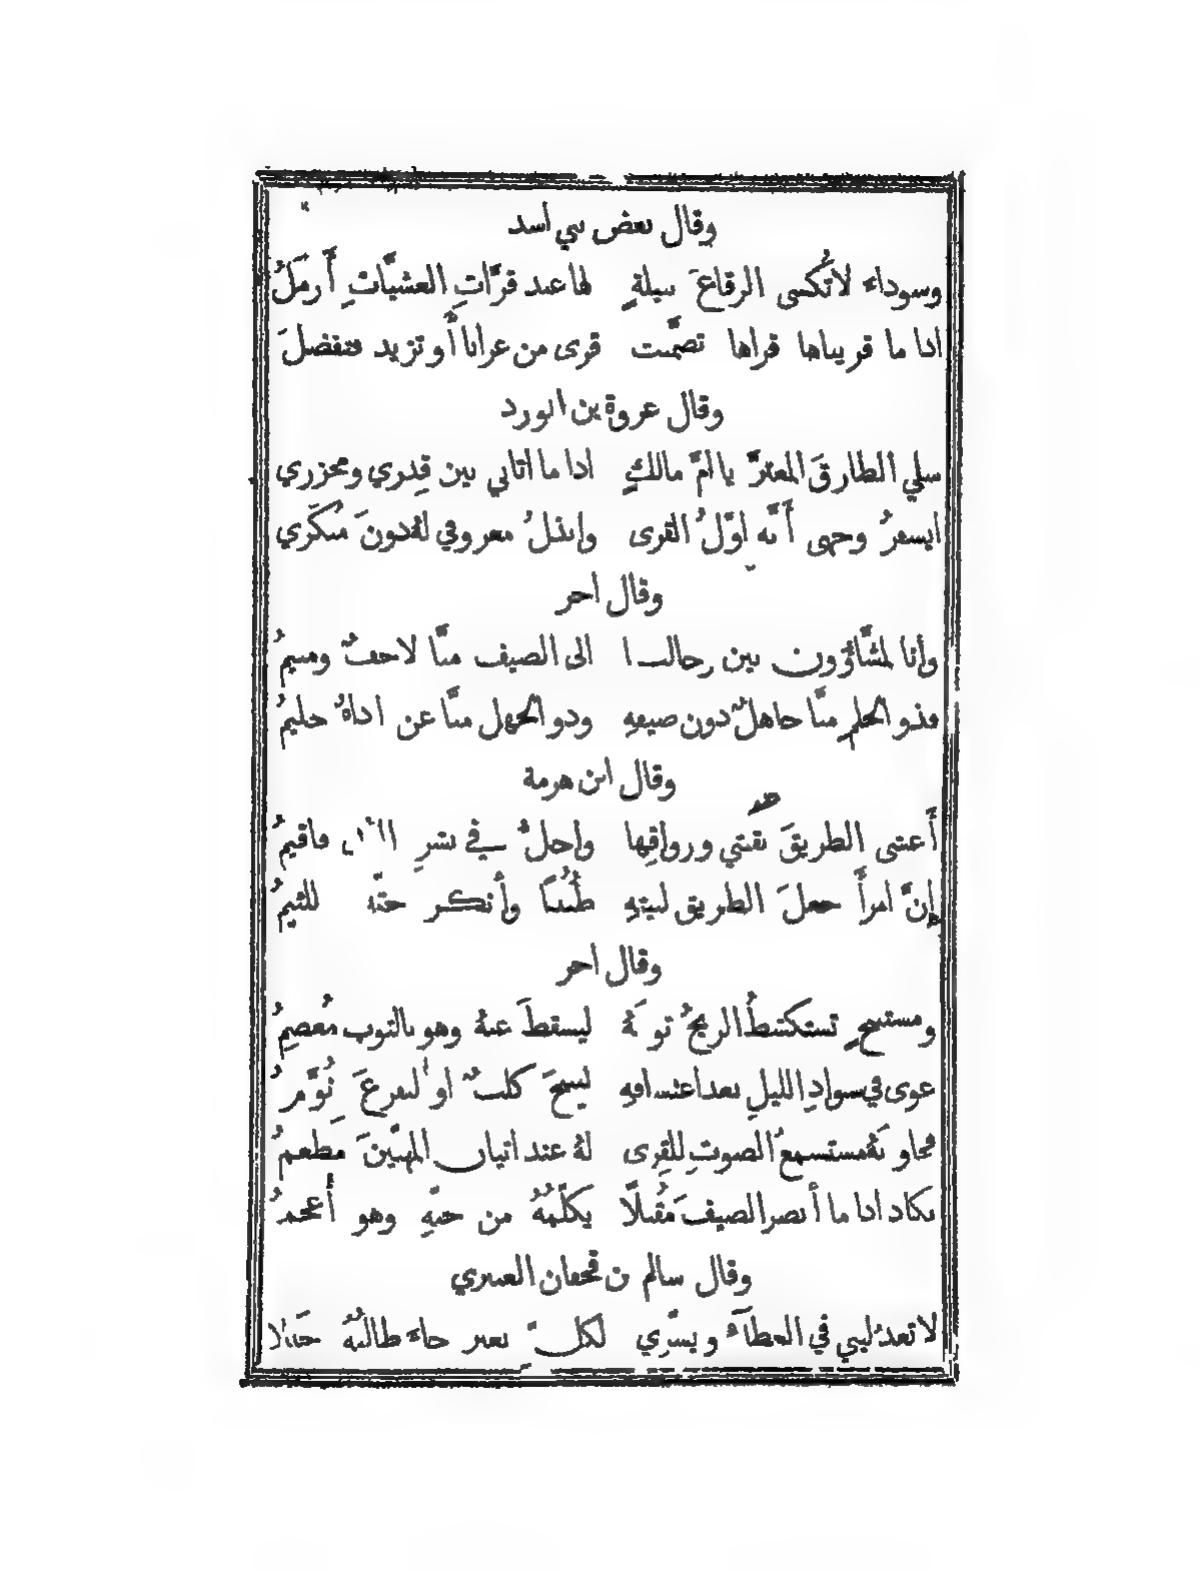 وقال بعض بني اسد
وسوداء لا تُكسى الرقاعَ نبيلةٍ لها عند قرَّاتِ العشيَّاتِ أَرمَلُ
اذا ما قريناها قراها تضمَّنت قرى من عرانا أَو تزيد فتفضلَ
وقال عروة بن الورد
سلي الطارقَ المعترَّ يا امَّ مالكٍ اذا ما اتاني بين قِدري ومجزري
ايسفرُ وجهي أَنَّه اوّلُ القرى وابذلُ معروفي لهُ دونَ منكَري
وقال آخر
وأنا لمشَّاؤون بين رحالنا الى الضيف منَّا لاحفٌ ومنيمُ
فذو الحلمِ منَّا جاهلٌ دون ضيفهِ وذو الجهل منَّا عن اذاهُ حليمُ
وقال ابن هرمة
أَغشى الطريقَ بقبّتي ورواقِها واحلُّ في نشزِ فاقيمُ
إِنَّ امرأً جعلَ الطريق لبيتهِ طُنُبًا وأَنكر حقّه للئيمُ
وقال آخر
ومستنبحٍ تستكشطُ الريحُ ثوبَهُ ليسقطَ عنهُ وهو بالثوب مُعصِمُ
عوى في سوادِ الليلِ بعد اعتسافهِ لينبحَ كلبٌ او ليفزعَ نُوَّمُ
فجاوبَهُ مستسمعُ الصوتِ للقِرى لهُ عند اتيان المهبّينَ مَطعمُ
يكاد اذا ما أَبصر الضيفَ مُقبلًا يكلّمُهُ من حبّهِ وهو أَعجمُ
وقال سالم بن قحفان العنبري
لا تعذُليني في العطآءِ ويسّري لكلِّ بعير جاءَ طالبُهُ حَبلا